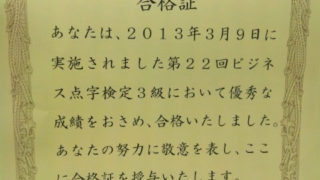 合格証
あなたは、２０１３年３月９日に
実施されました第２２回ビジネ
ス点字検定３級において優秀な
成績をおさめ、合格いたしました。
あなたの努力に敬意を表し、ここ
に合格証を授与いたします。